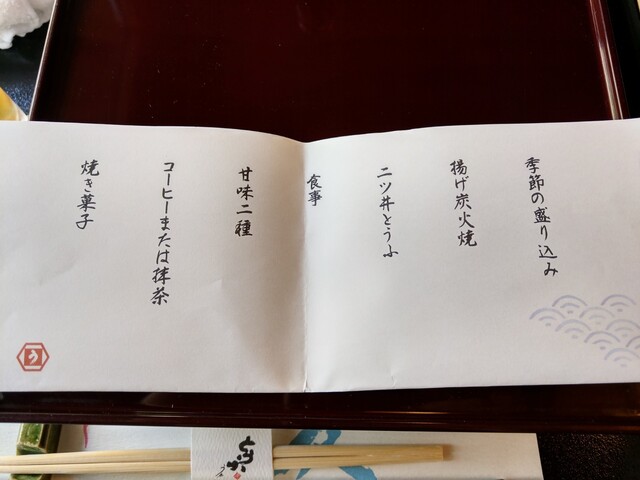 季節の盛り込み
揚げ炭火焼
二ツ井とうふ
食事
甘味二種
コーヒーまたは抹茶
焼き菓子
う